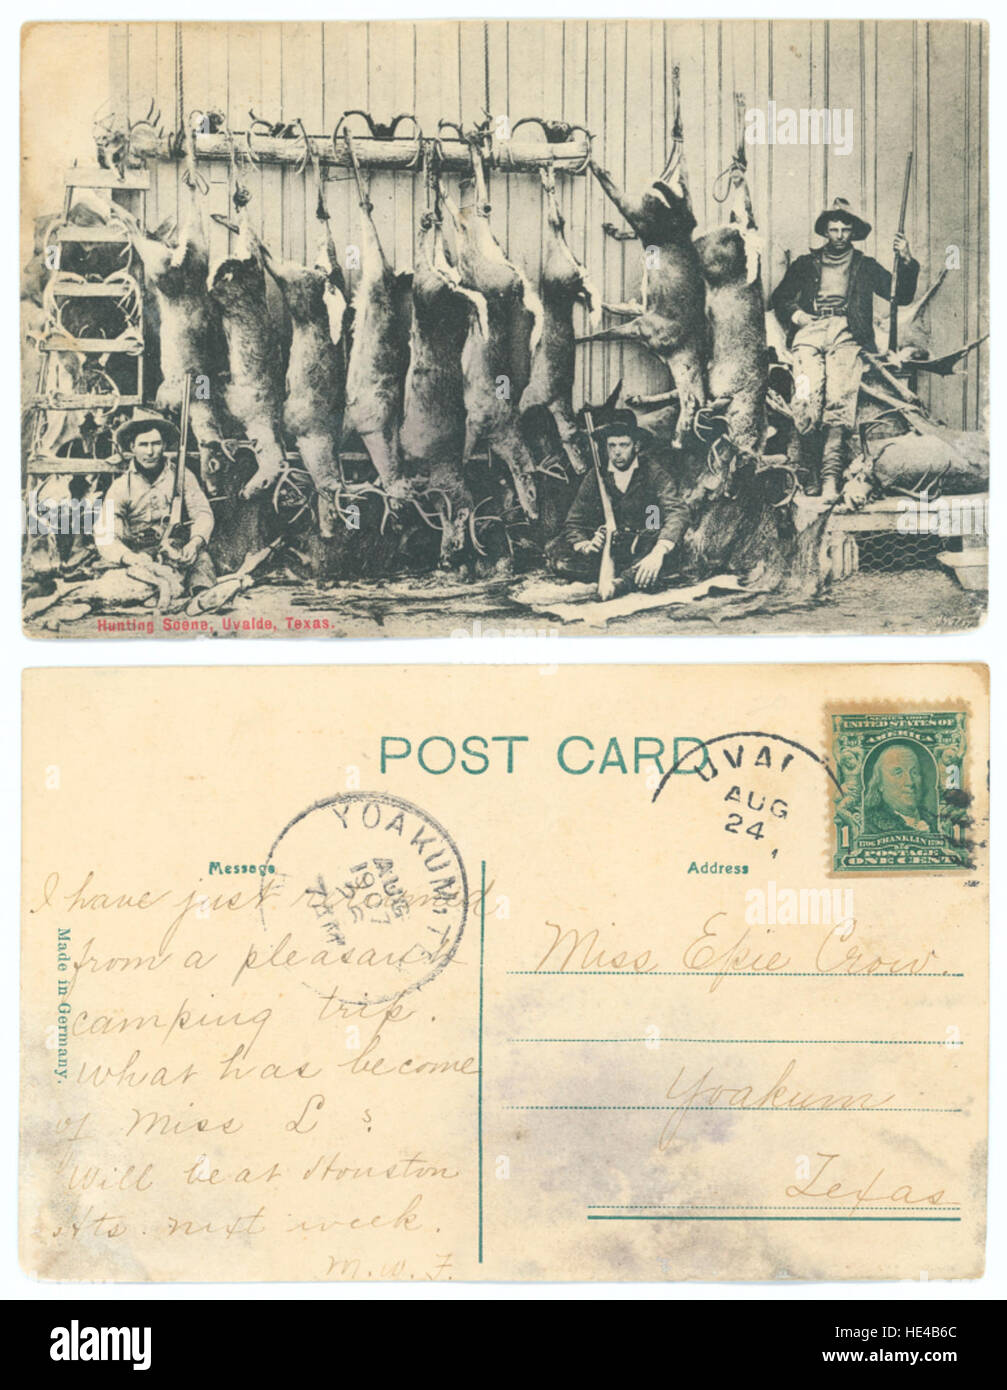 Hunting Scene, Uvalde, Texas.
POST CARD
UVAL
AUG
24
SERIES 1902
UNITED STATES OF
AMERICA
1
1706 FRANKLIN 1790
1
POSTAGE
ONE CENT
YOAKUM, TE
AUG
1907
7 AM
Message
Address
Made in Germany.
I have just returned
from a pleasant
camping trip.
What has become
of Miss L s.
Will be at Houston
Hts. next week.
M. W. F.
Miss Epie Crow.
Yoakum
Texas
alamy
alamy
Image ID: HE4B6C
www.alamy.com